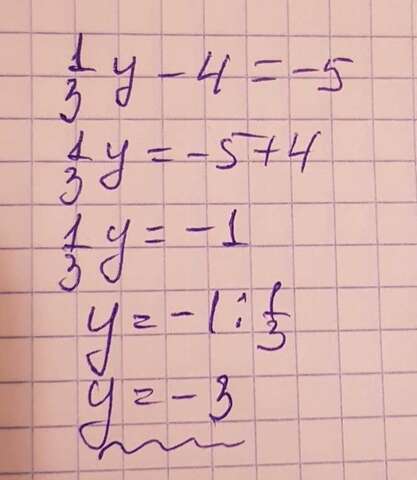 1/3 y - 4 = -5
1/3 y = -5 + 4
1/3 y = -1
y = -1 : 1/3
y = -3